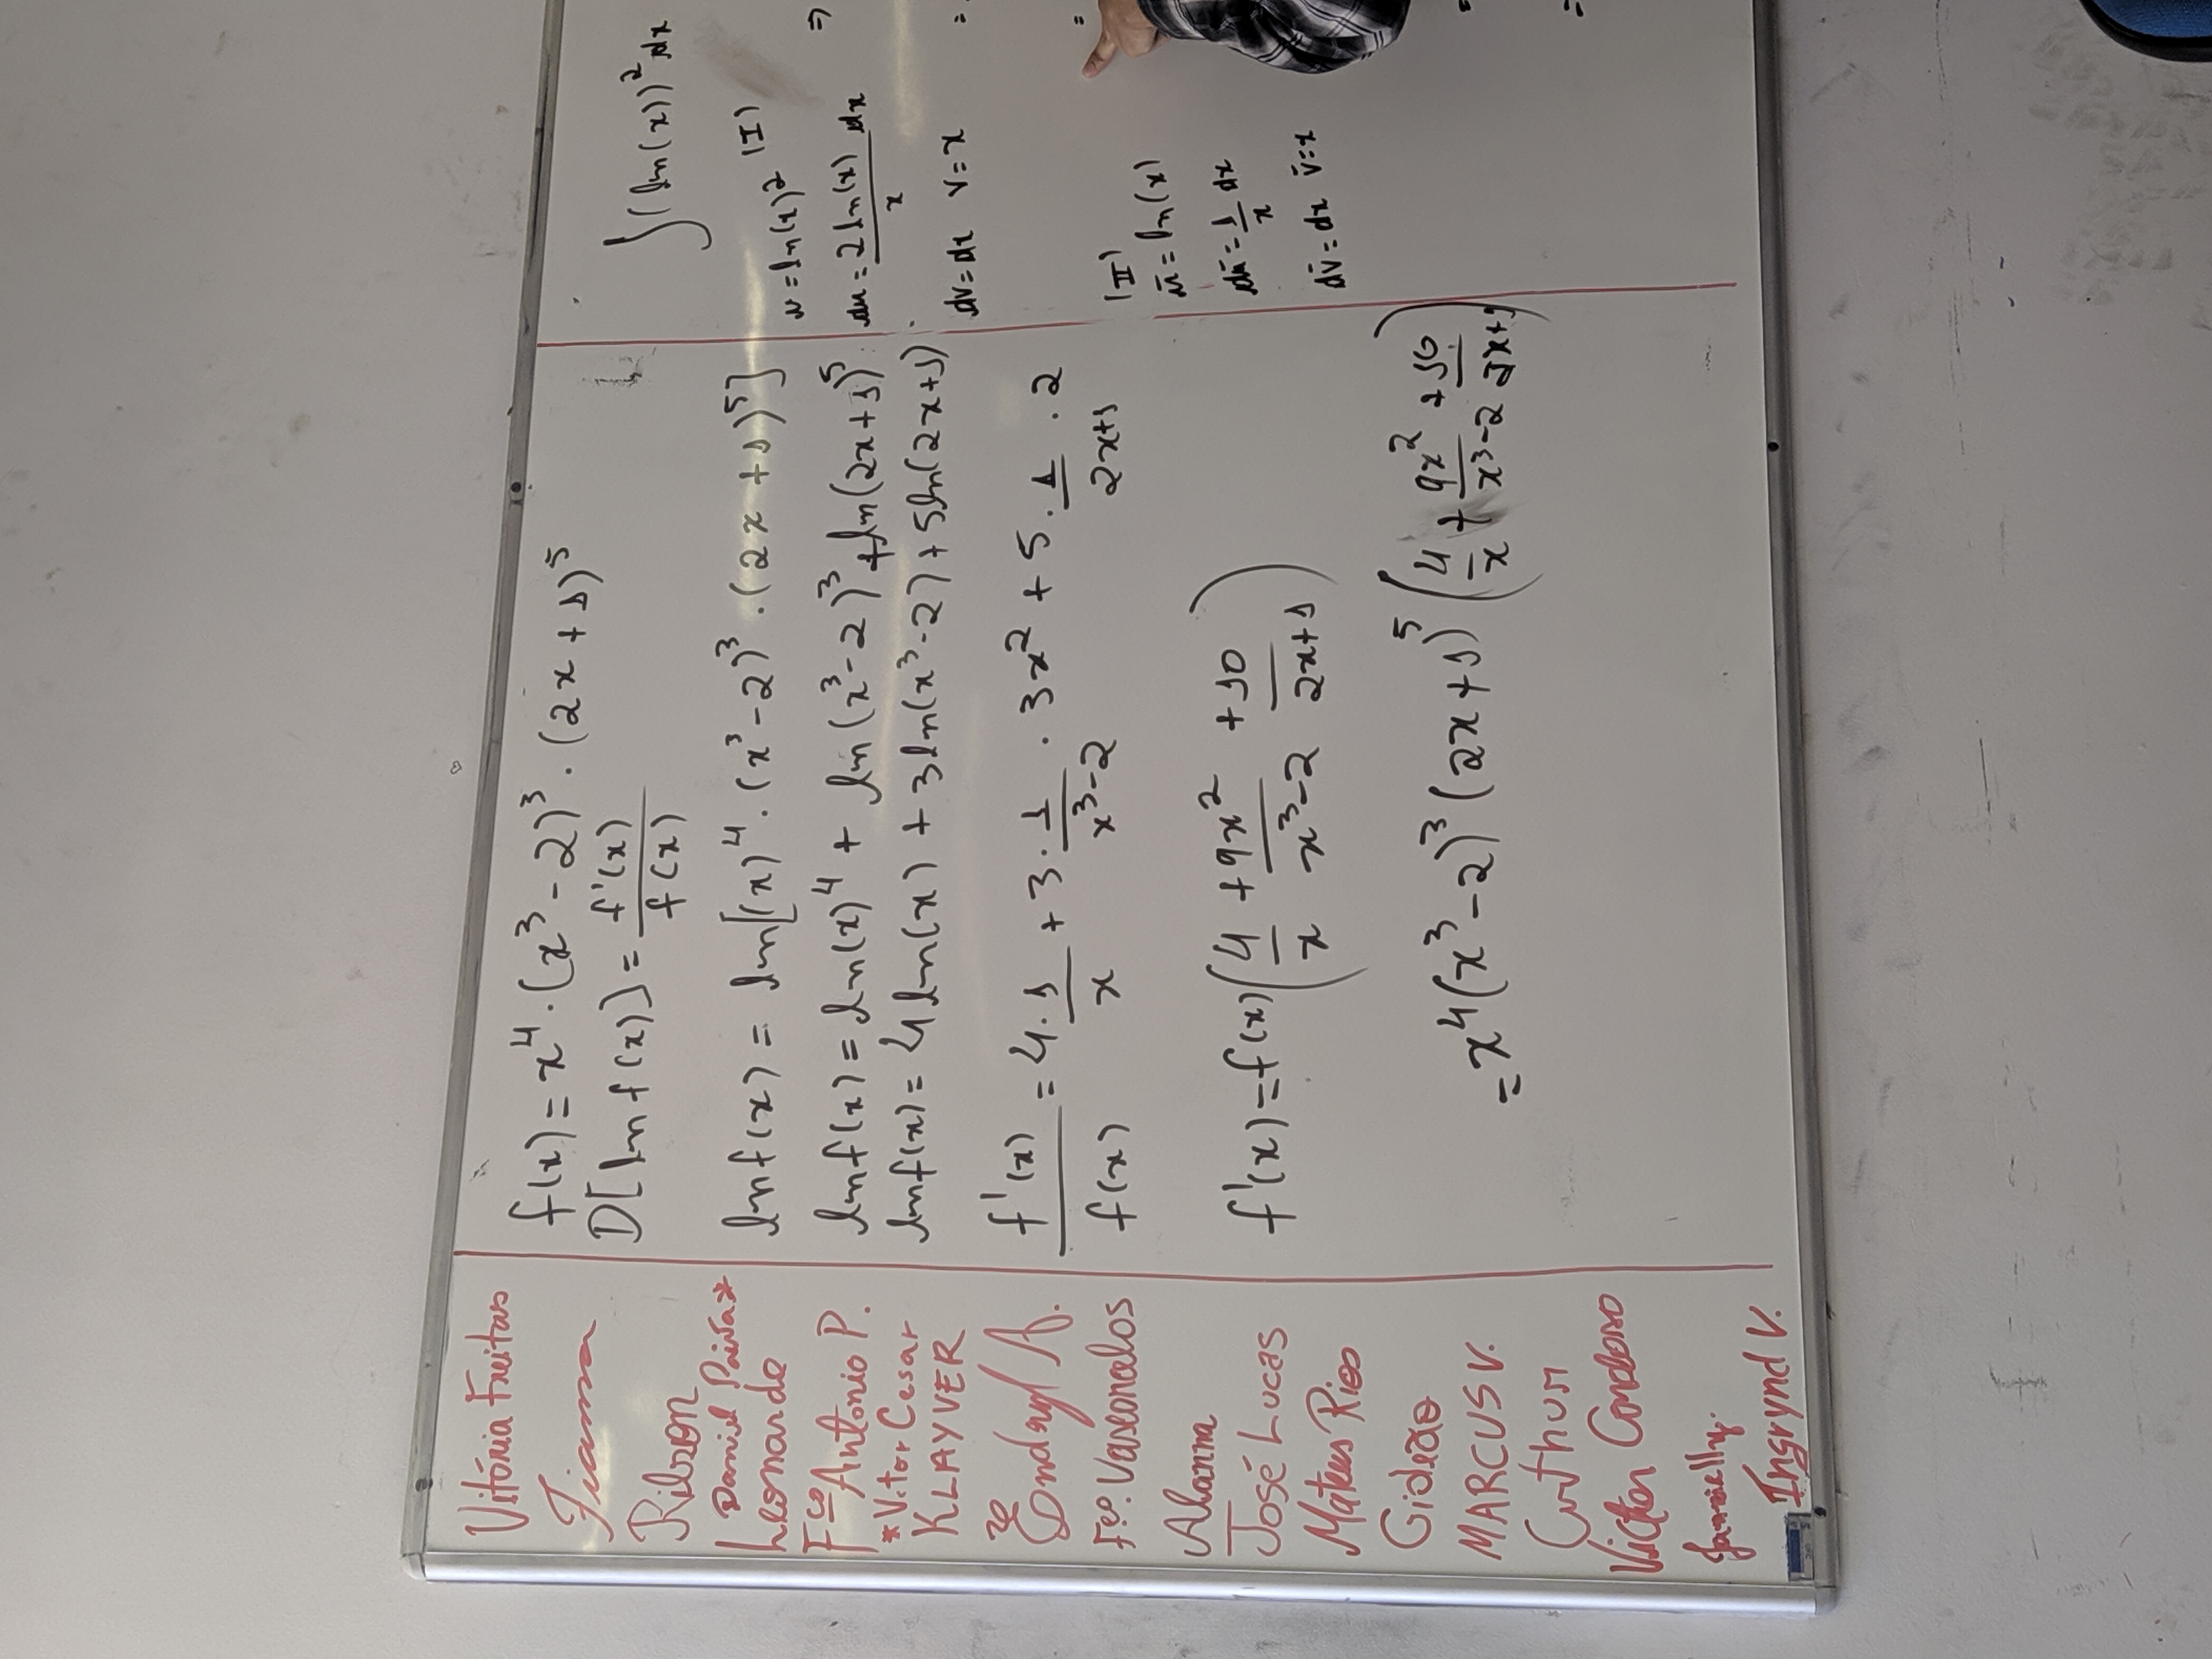 Vitória Freitas
Fianna
Ribson
Daniel Paiva*
Leonardo
Fco Antonio P.
*Vitor Cesar
KLAYVER
Fco. Vasconcelos
Alanna
José Lucas
Mateus Rios
Gideão
MARCUS V.
Arthur
Victor Cardoso
Jannielly.
Ingrynd V.
f(x) = x⁴ · (x³ - 2)³ · (2x + 1)⁵
D[ln f(x)] = f'(x) / f(x)
ln f(x) = ln[(x)⁴ · (x³ - 2)³ · (2x + 1)⁵]
ln f(x) = ln(x)⁴ + ln(x³ - 2)³ + ln(2x + 1)⁵
ln f(x) = 4 ln(x) + 3 ln(x³ - 2) + 5 ln(2x + 1)
f'(x) / f(x) = 4 · 1/x + 3 · 1/(x³ - 2) · 3x² + 5 · 1/(2x+1) · 2
f'(x) = f(x) (4/x + 9x²/(x³ - 2) + 10/(2x + 1))
= x⁴ (x³ - 2)³ (2x + 1)⁵ (4/x + 9x²/(x³ - 2) + 10/(2x + 1))
∫(ln(x))² dx
(I)
u = ln(x)²
⇒
du = 2 ln(x)/x dx
dv = dx v = x
=
=
(II)
ū = ln(x)
dū = 1/x dx
dv̄ = dx v̄ = x
=
=